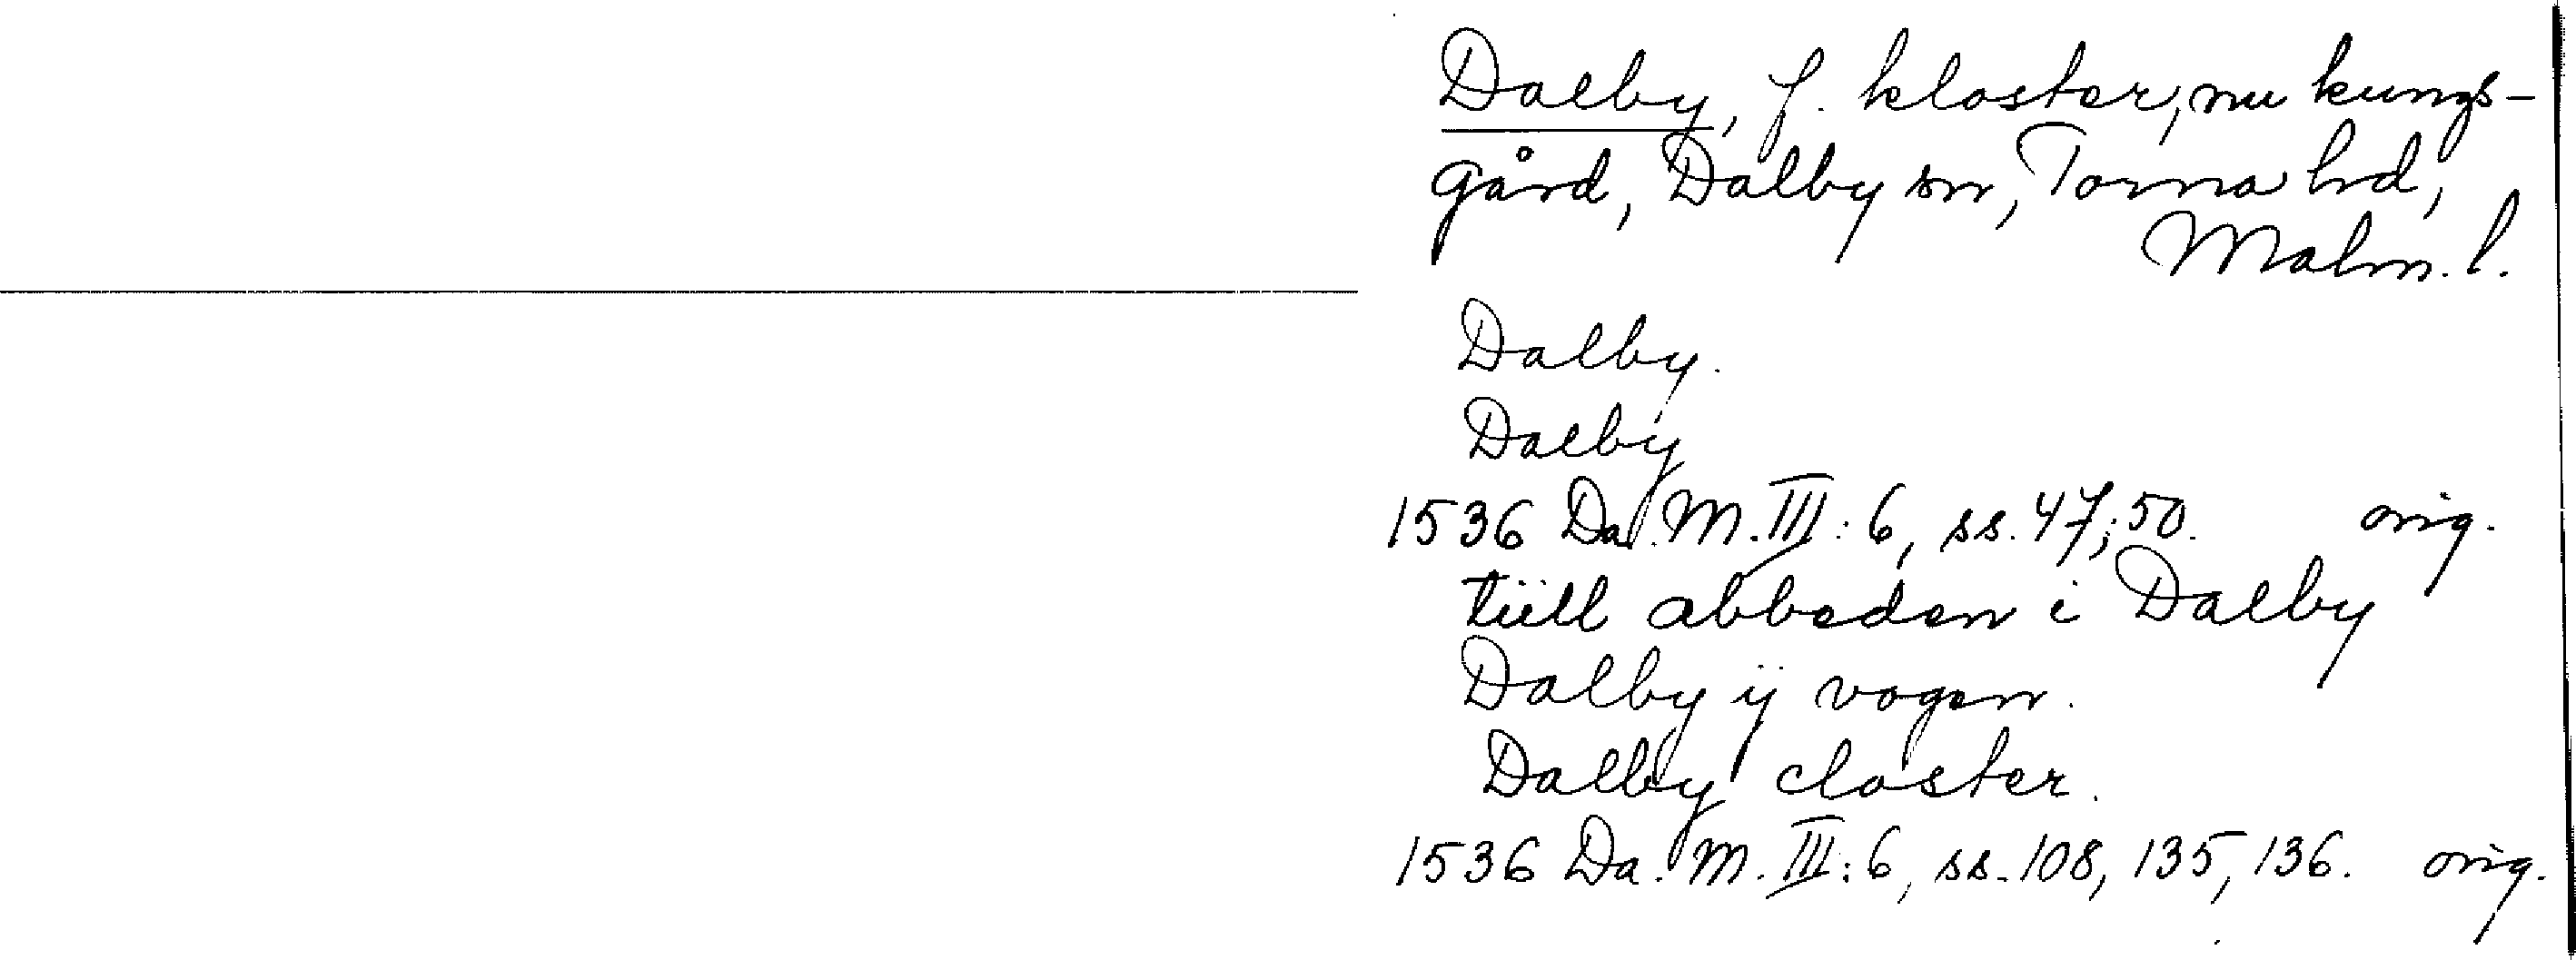 Dalby, f. kloster, nu kungs-
gård, Dalby sn, Torna hd,
Malm. l.
Dalby.
Dalby
1536 Da. M. III: 6, ss. 47; 50. orig.
tiill abbeden i Dalby
Dalby ij vogen.
Dalby closter.
1536 Da. M. III: 6, ss. 108, 135, 136. orig.